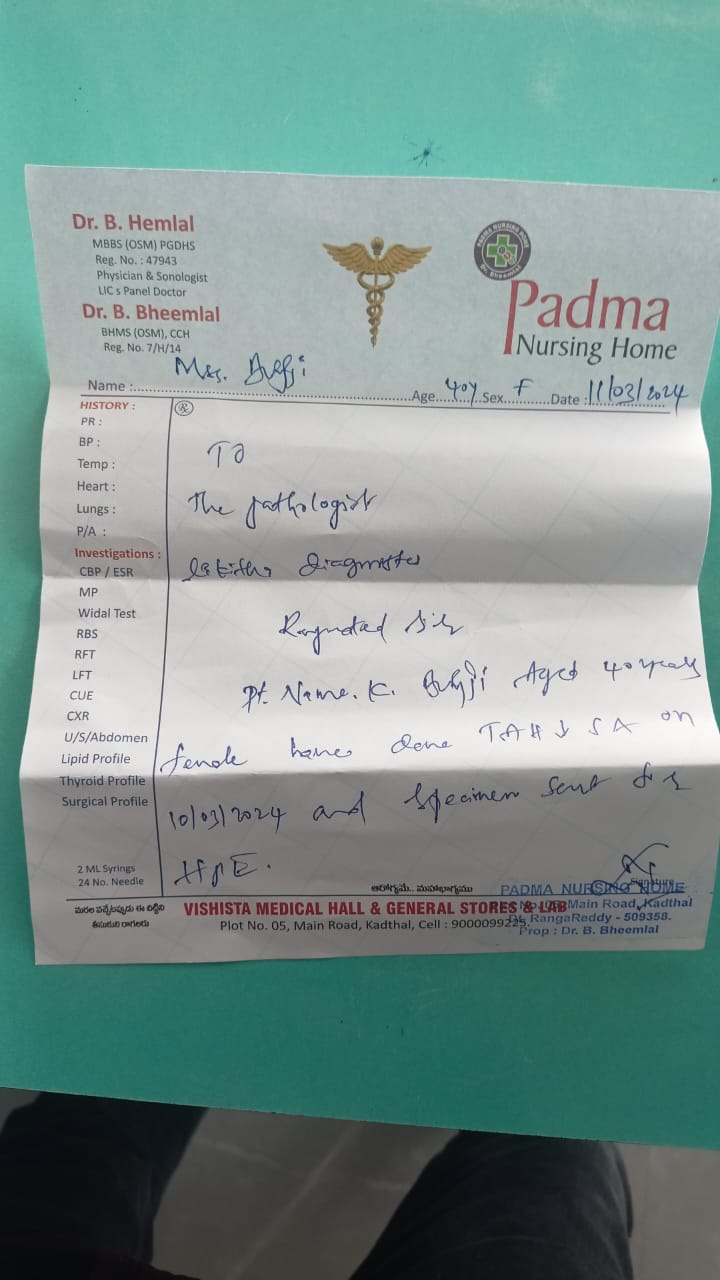 Dr. B. Hemlal
MBBS (OSM) PGDHS
Reg. No. : 47943
Physician & Sonologist
LIC s Panel Doctor
Dr. B. Bheemlal
BHMS (OSM), CCH
Reg. No. 7/H/14
PADMA NURSING HOME
Dr. Bheemlal
Padma
Nursing Home
Name : Mrs. Age 40y Sex F Date : 11/03/2024
HISTORY :
PR :
BP :
Temp :
Heart :
Lungs :
P/A :
Investigations :
CBP / ESR
MP
Widal Test
RBS
RFT
LFT
CUE
CXR
U/S/Abdomen
Lipid Profile
Thyroid Profile
Surgical Profile
2 ML Syrings
24 No. Needle
To
The pathologist
diagnostics
Respected Sir
Pt. Name. K. Aged 40 years
female have done TAH SA on
10/03/2024 and specimen sent for
HPE.
Signature
ఆరోగ్యమే.. మహాభాగ్యము
PADMA NURSING HOME
Main Road, Kadthal
RangaReddy - 509358.
Prop : Dr. B. Bheemlal
మరల వచ్చేటప్పుడు ఈ చిట్టీని
తీసుకుని రాగలరు
VISHISTA MEDICAL HALL & GENERAL STORES & LAB
Plot No. 05, Main Road, Kadthal, Cell : 9000099225,